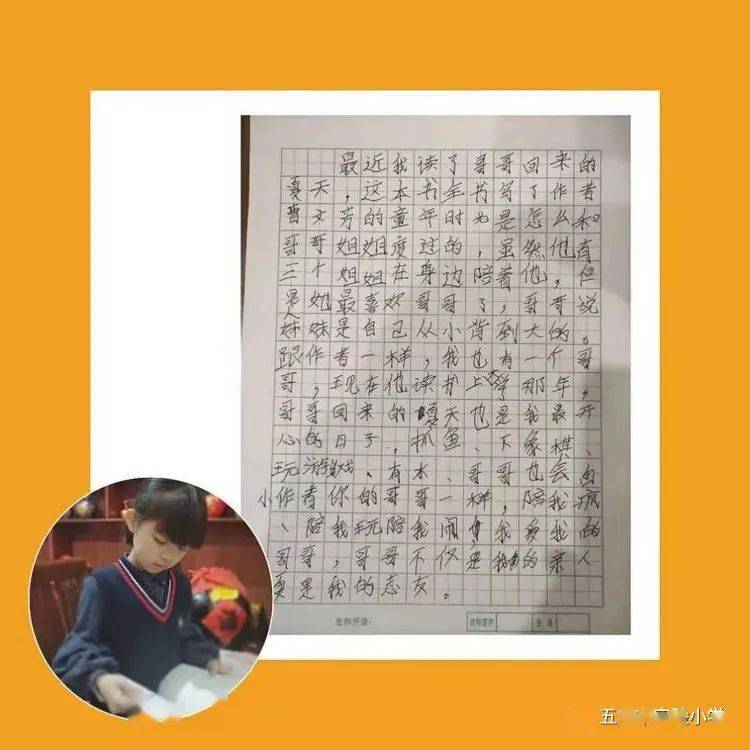 最近我读了哥哥回来的
夏天，这本书全书写了作者
曹文芳的童年时光是怎么和
哥哥姐姐度过的，虽然他有
三个姐姐在身边陪着他，但
是她最喜欢哥哥了，哥哥说
妹妹是自己从小背到大的。
跟作者一样，我也有一个哥
哥，现在他读书上学那年，
哥哥回来的夏天也是我最开
心的日子，抓鱼、下象棋、
玩、有水、哥哥也会向
小作者你的哥哥一样，陪我疯
、陪我玩陪我闹，我爱我的
哥哥，哥哥不仅是我的亲人
更是我的志友。
老师评语：
老师签字
小学